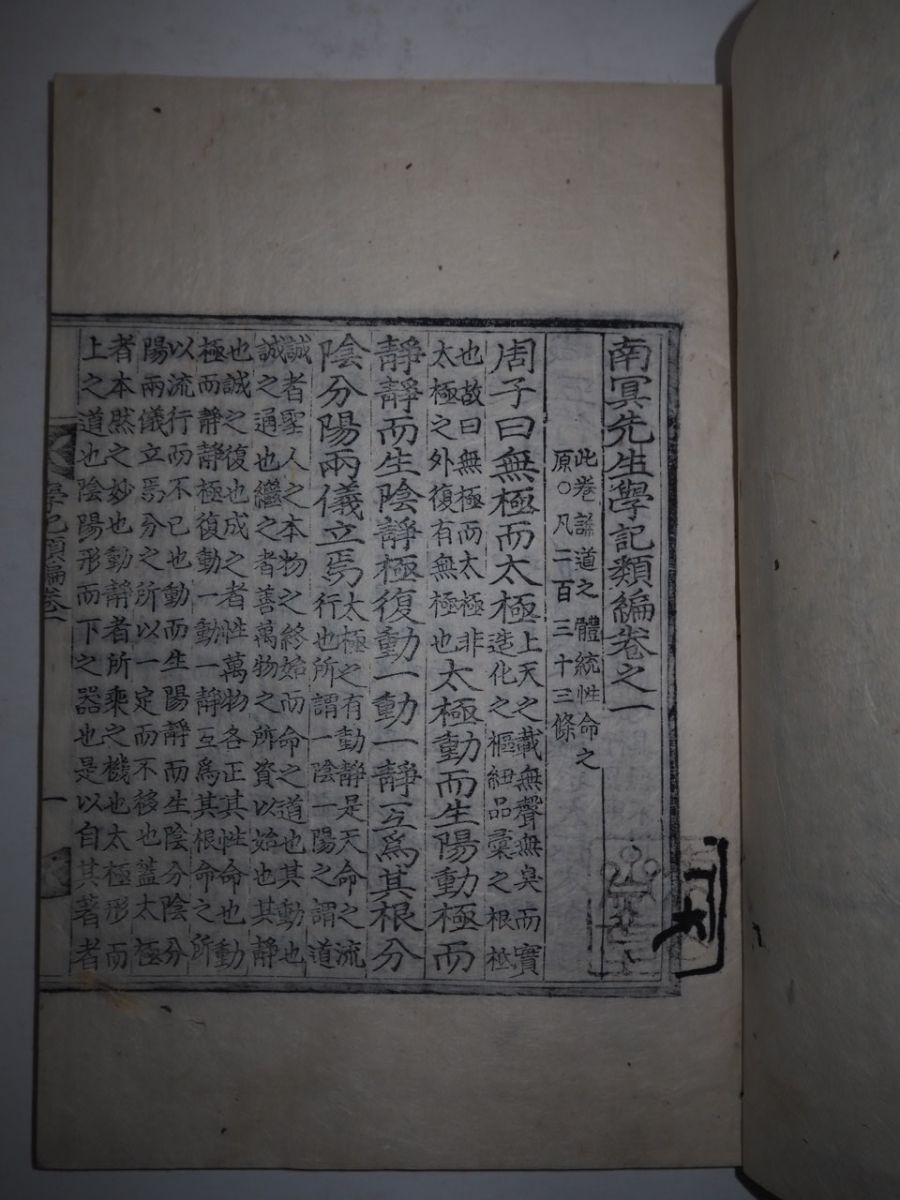 南冥先生學記類編卷之一
此卷論道之體統性命之
原○凡二百三十三條
周子曰無極而太極
上天之載無聲無臭而實
造化之樞紐品彙之根柢
也故曰無極而太極非
太極之外復有無極也
太極動而生陽動極而
靜靜而生陰靜極復動一動一靜互爲其根分
陰分陽兩儀立焉
太極之有動靜是天命之流
行也所謂一陰一陽之謂道
誠者聖人之本物之終始而命之道也其動也
誠之通也繼之者善萬物之所資以始也其靜
也誠之復也成之者性萬物各正其性命也動
極而靜靜極復動一動一靜互爲其根命之所
以流行而不已也動而生陽靜而生陰分陰分
陽兩儀立焉分之所以一定而不移也蓋太極
者本然之妙也動靜者所乘之機也太極形而
上之道也陰陽形而下之器也是以自其著者
學記類編卷一
一